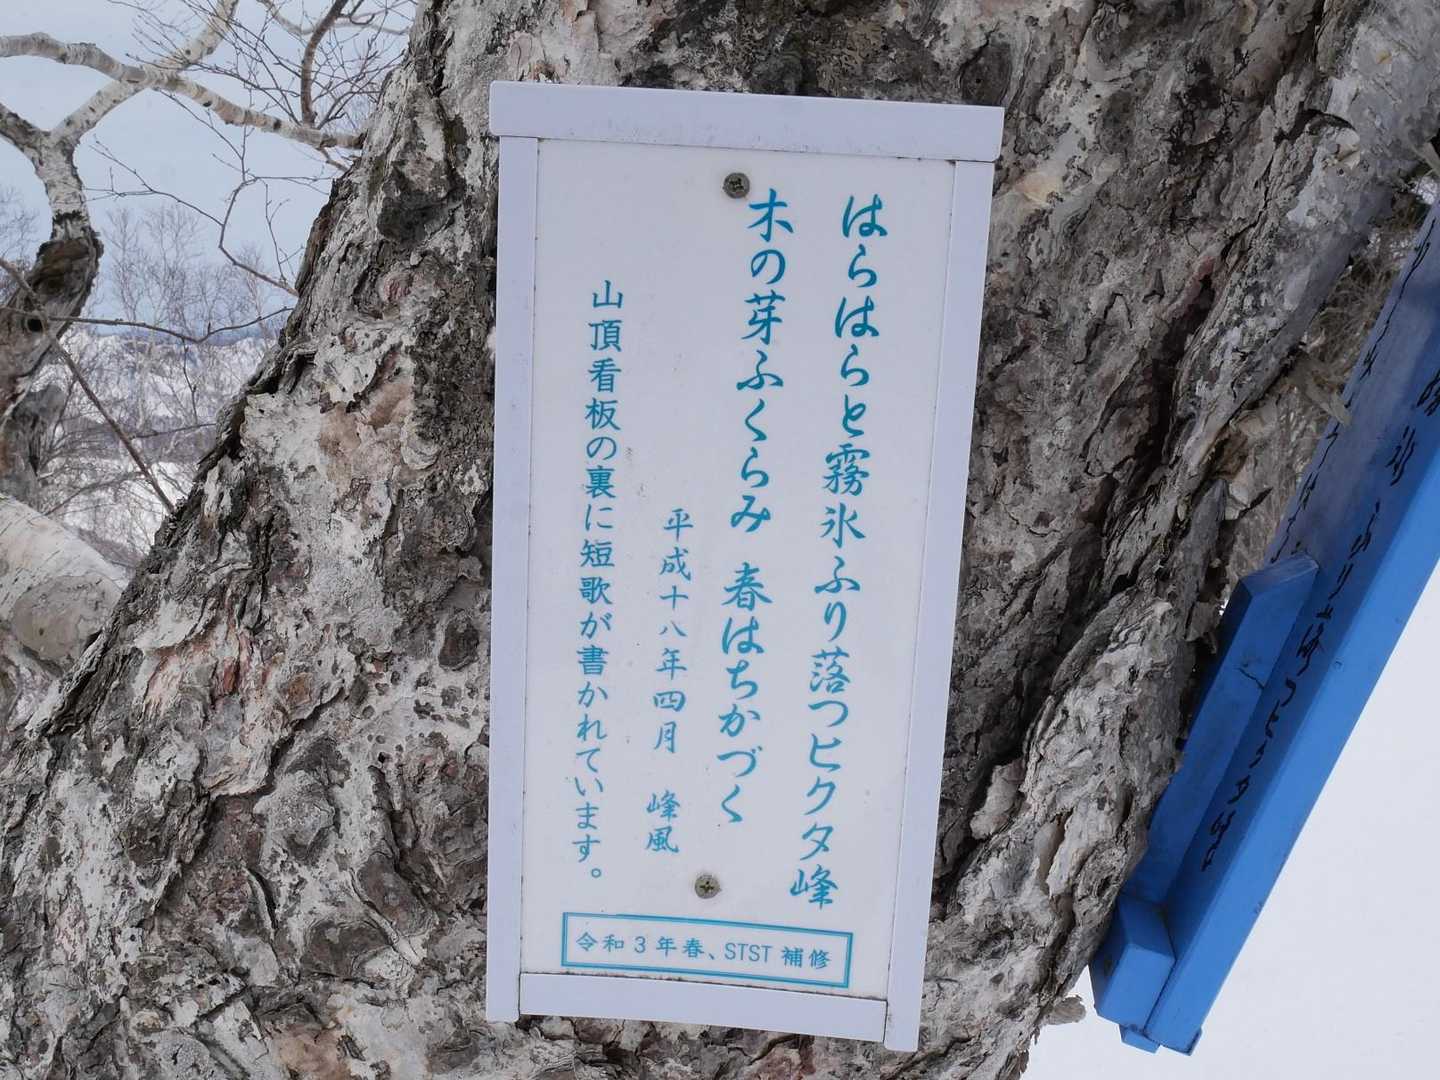 はらはらと霧氷ふり落つピクタ峰
木の芽ふくらみ 春はちかづく
平成十八年四月 峰風
山頂看板の裏に短歌が書かれています。
令和3年春、STST補修